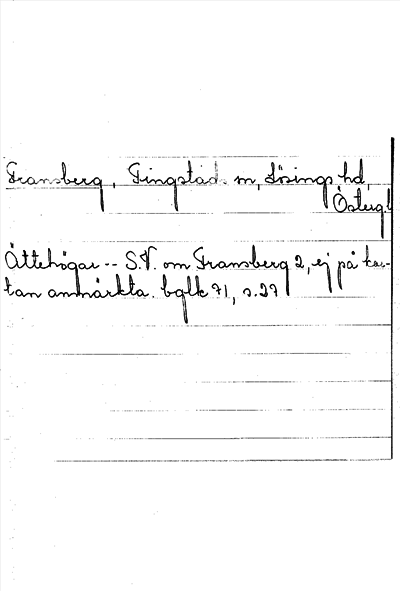 Fransberg, Tingstads sn, Lösings hd,
Österg.
Ättehögar -- S.V. om Fransberg 2, ej på kar-
tan anmärkta. bglk 71, s. 27